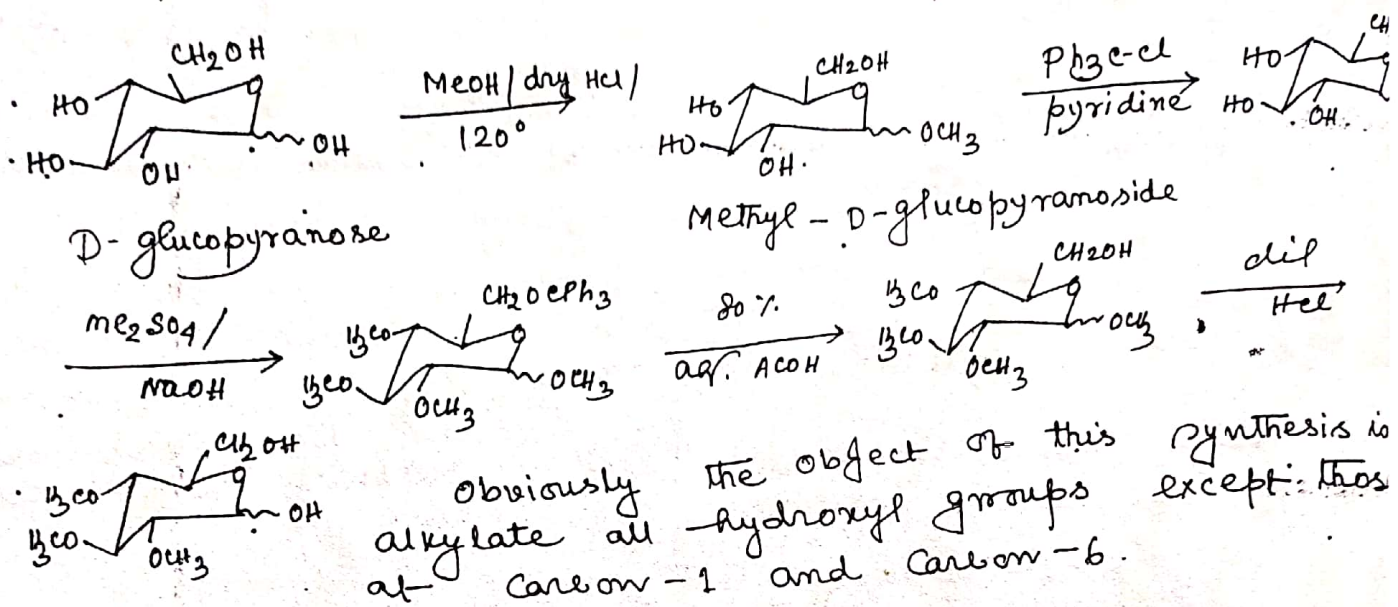 CH2OH
HO
HO
OH
OH
MeOH / dry HCl /
120°
CH2OH
HO
HO
OH.
OCH3
Ph3C-Cl
pyridine
HO
HO
OH
CH
D- glucopyranose
Methyl - D-glucopyranoside
me2SO4 /
NaOH
CH2OCPh3
H3CO
H3CO
OCH3
OCH3
80 %
aq. ACOH
CH2OH
H3CO
H3CO
OCH3
OCH3
dil
HCl
CH2OH
H3CO
H3CO
OCH3
OH
Obviously the object of this synthesis is
alkylate all hydroxyl groups except thos
at Carbon-1 and Carbon-6.